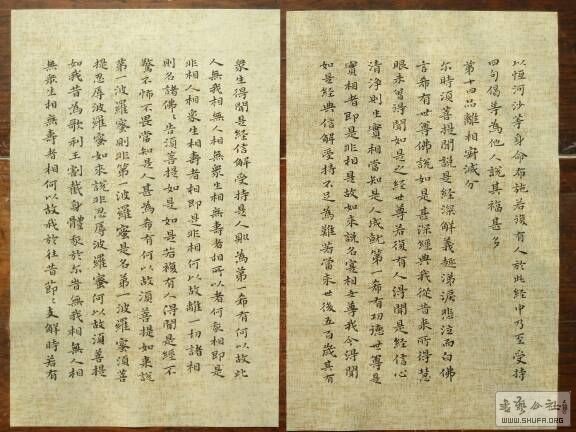 以恆河沙等身命布施若復有人於此經中乃至受持
四句偈等為他人說其福甚多
第十四品離相寂滅分
尒時須菩提聞說是經深解義趣涕淚悲泣而白佛
言希有世尊佛說如是甚深經典我從昔來所得慧
眼未曾得聞如是之經世尊若復有人得聞是經信心
清淨則生實相當知是人成就第一希有功德世尊是
實相者即是非相是故如來說名實相世尊我今得聞
如是經典信解受持不足為難若當來世後五百歲其有
眾生得聞是經信解受持是人則為第一希有何以故此
人無我相無人相無眾生相無壽者相所以者何我相即是
非相人相眾生相壽者相即是非相何以故離一切諸相
則名諸佛〻告須菩提如是如是若復有人得聞是經不
驚不怖不畏當知是人甚為希有何以故須菩提如來說
第一波羅蜜則非第一波羅蜜是名第一波羅蜜須菩
提忍辱波羅蜜如來說非忍辱波羅蜜何以故須菩提
如我昔為歌利王割截身體我於尒時無我相無人相
無眾生相無壽者相何以故我於往昔節〻支解時若有
WWW.SHUFA.ORG